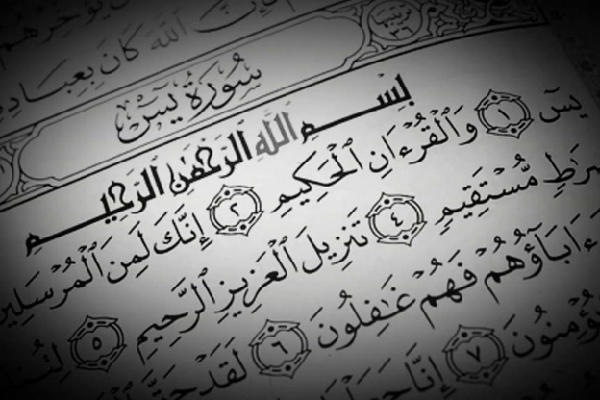 الله كان بعباده
سُورَةُ يسٓ
بِسْمِ اللَّهِ الرَّحْمَٰنِ الرَّحِيمِ
يسٓ ١ وَالْقُرْءَانِ الْحَكِيمِ ٢ إِنَّكَ لَمِنَ الْمُرْسَلِينَ
صِرَٰطٍ مُّسْتَقِيمٍ ٤ تَنزِيلَ الْعَزِيزِ الرَّحِيمِ ٥
ءَابَآؤُهُمْ فَهُمْ غَٰفِلُونَ ٦ لَقَدْ حَقَّ
يُؤْمِنُونَ ٧ إِنَّا جَعَلْنَا